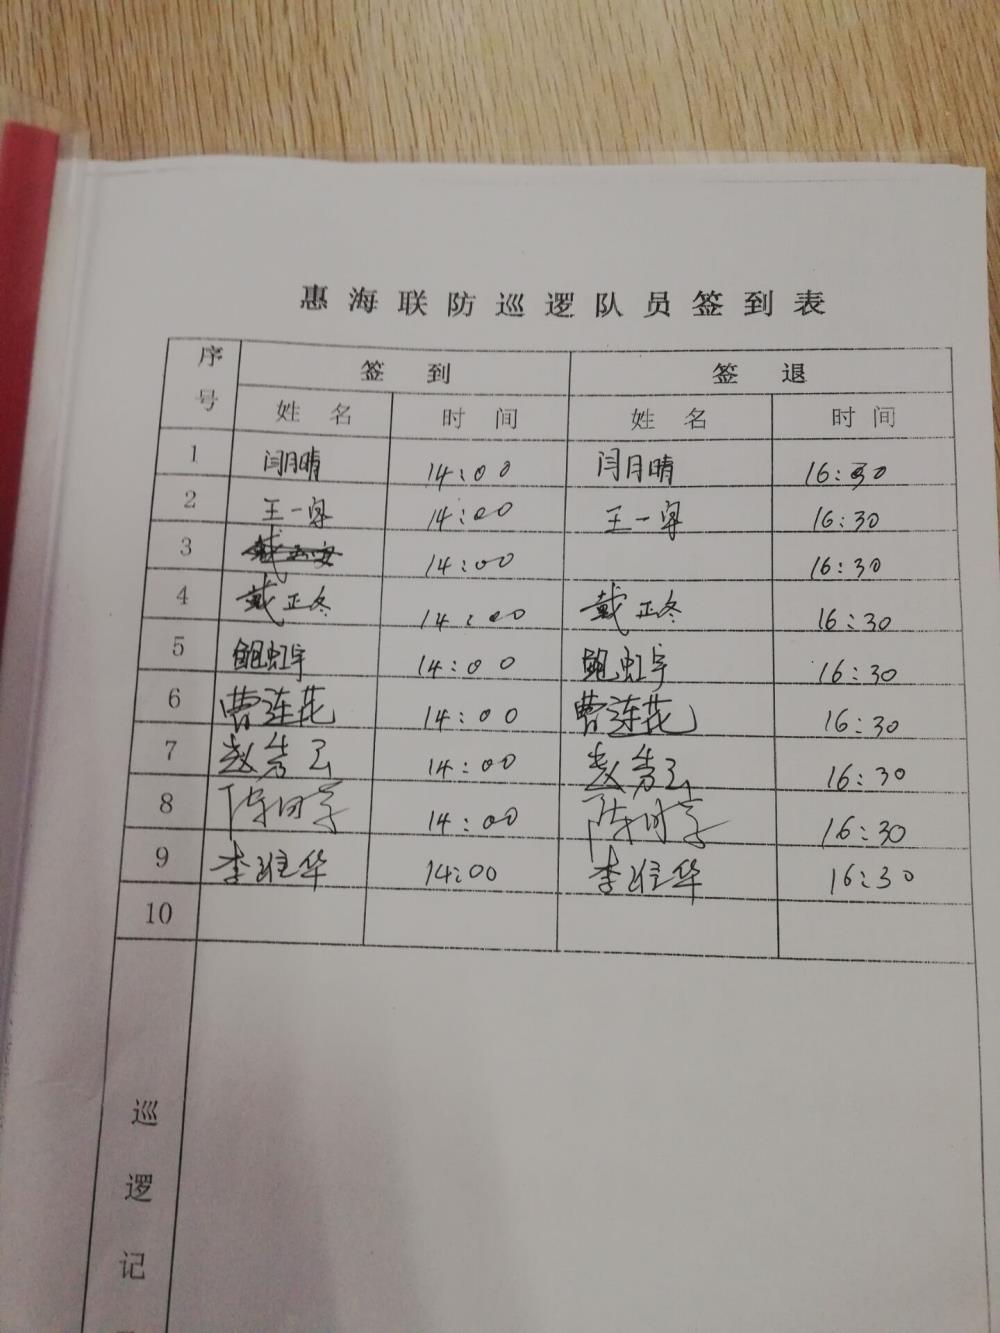 惠海联防巡逻队员签到表
序号 签到 签退
姓名 时间 姓名 时间
1 闫月晴 14:00 闫月晴 16:30
2 王一 14:00 王一 16:30
3 14:00 16:30
4 戴正冬 14:00 戴正冬 16:30
5 鲍虹宇 14:00 鲍虹宇 16:30
6 曹莲花 14:00 曹莲花 16:30
7 赵秀云 14:00 赵秀云 16:30
8 陈 14:00 陈 16:30
9 李淮华 14:00 李淮华 16:30
10
巡逻记